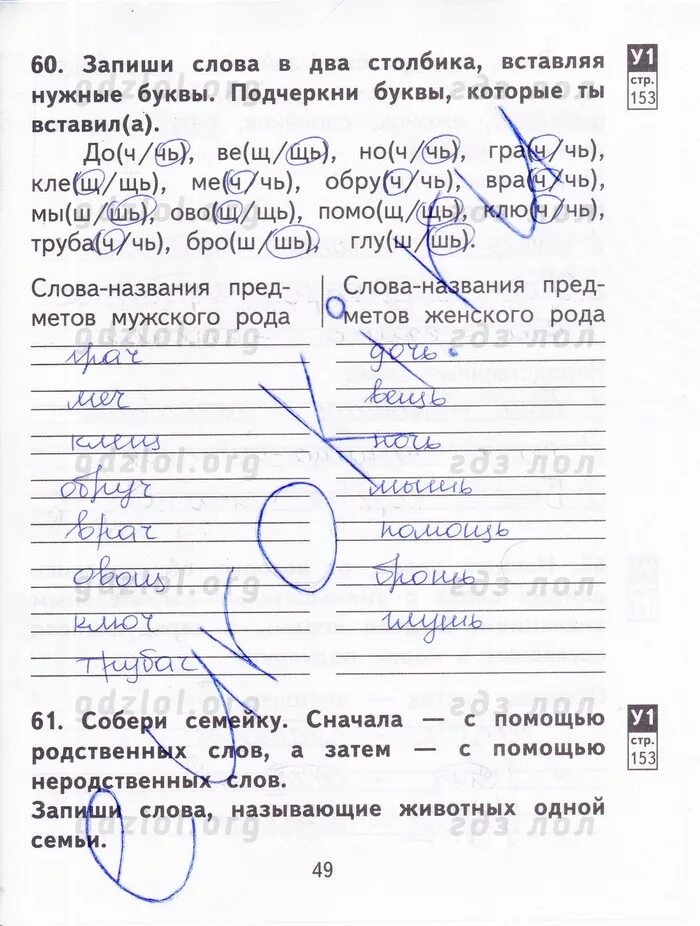 60. Запиши слова в два столбика, вставляя
нужные буквы. Подчеркни буквы, которые ты
вставил(а).
У1
стр.
153
До(ч/чь), ве(щ/щь), но(ч/чь), гра(ч/чь),
кле(щ/щь), ме(ч/чь), обру(ч/чь), вра(ч/чь),
мы(ш/шь), ово(щ/щь), помо(щ/щь), клю(ч/чь),
труба(ч/чь), бро(ш/шь), глу(ш/шь).
Слова-названия пред-
метов мужского рода
Слова-названия пред-
метов женского рода
грач
меч
клещ
обруч
врач
овощ
ключ
трубач
дочь
вещь
ночь
мышь
помощь
брошь
глушь
gdzlol.org гдз лол
61. Собери семейку. Сначала — с помощью
родственных слов, а затем — с помощью
неродственных слов.
Запиши слова, называющие животных одной
семьи.
У1
стр.
153
49